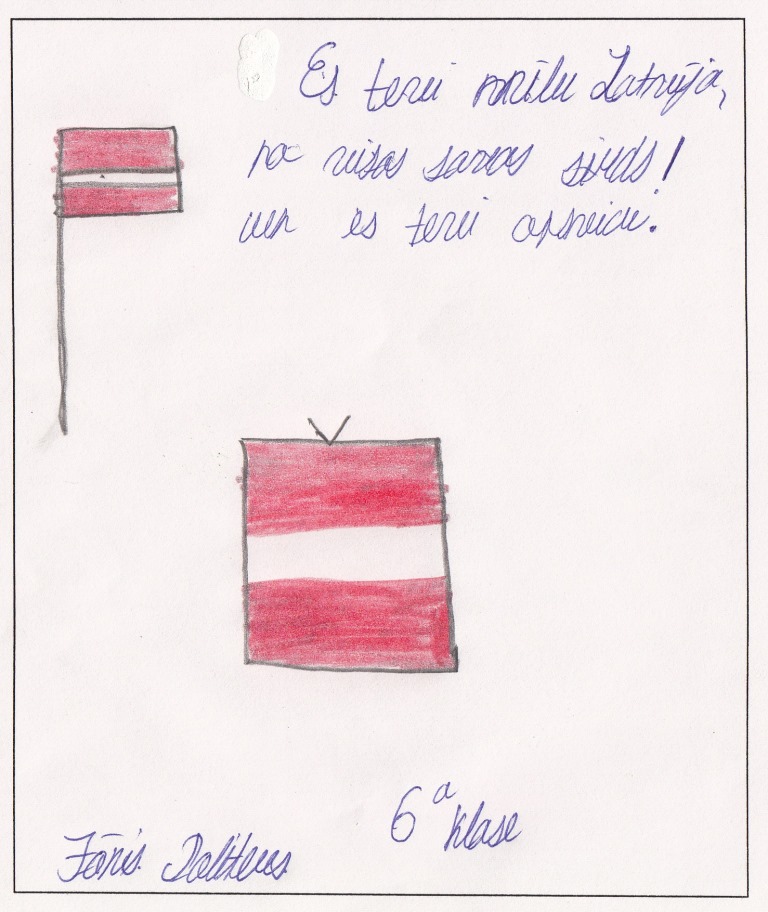 Es tevi mīlu Latvija,
no visas savas sirds!
un es tevi apsveicu.
6a klase
Jānis